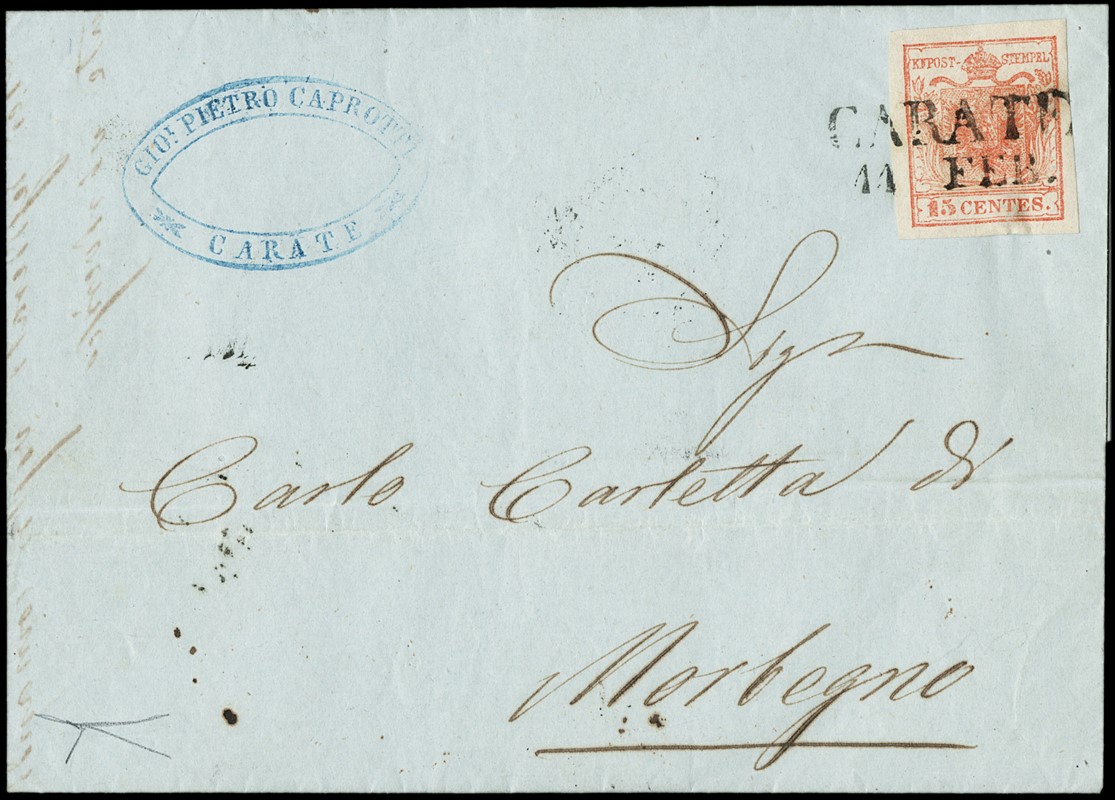 GIO: PIETRO CAPROTTI
CARATE
KKPOST-STEMPEL
CARATE
11 FEB.
15 CENTES.
Sigr
Carlo Carletta di
Morbegno